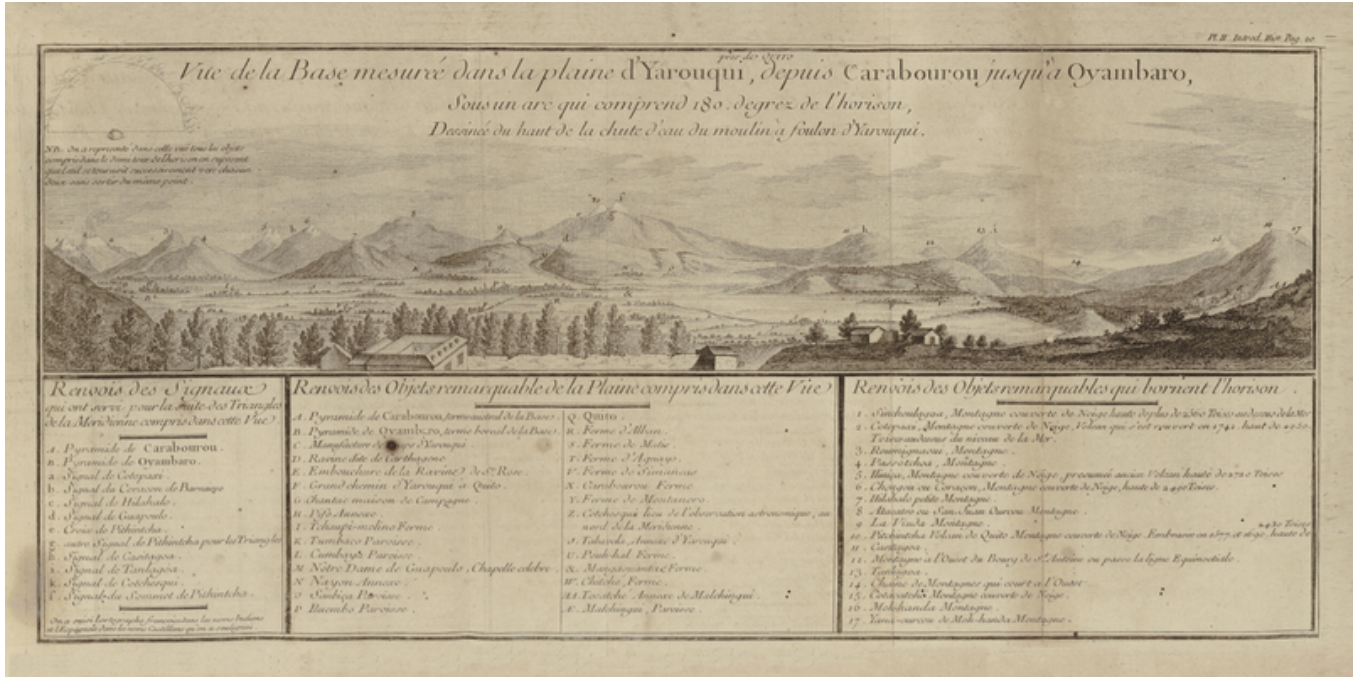 Pl. II. Introd. Hist. Pag. 20
près de Quito
Vue de la Base mesurée dans la plaine d'Yarouqui, depuis Carabourou jusqu'à Oyambaro,
Sous un arc qui comprend 180. degrez de l'horison,
Dessinée du haut de la chute d'eau du moulin à foulon d'Yarouqui.
NB. On a représenté dans cette vue tous les objets
compris dans le demi tour de l'horison en suposant
que l'œil se tournoit successivement vers chacun
deux sans sortir du meme point.
Renvois des Signaux
qui ont servi pour la suite des Triangles
de la Meridienne compris dans cette Vue
A. Pyramide de Carabourou.
B. Pyramide de Oyambaro.
a. Signal de Cotopaxi.
b. Signal du Coraçon de
c. Signal de
d. Signal de Guapoulo.
e. Croix de Pithintcha.
autre Signal de Pithintcha pour les Triangles
h. Signal de
i. Signal de Tanlagoa.
k. Signal de Cotchesqui.
Signal du Sommet de Pithintcha.
On a suivi l'ortographe françoise dans les noms Indiens
et l'Espagnole dans les noms Castillans qu'on a
Renvois des Objets remarquable de la Plaine compris dans cette Vue
A. Pyramide de Carabourou, terme austral de la Base
B. Pyramide de Oyambero, terme boreal de la Base
C. Manufacture de d'Yarouqui
D. Ravine dite de Carthagene
E. Embouchure de la Ravine de Ste. Rose.
F. Grand chemin d'Yarouqui à Quito.
G. Chantac maison de Campagne.
H. Pifo Annexe.
I. Tchaupi-molino Ferme.
K. Tumbaco Paroisse.
L. Cumbaya Paroisse.
M. Nôtre Dame de Guapoulo, Chapelle celebre.
N. Nayon Annexe.
O. Paroisse.
P. Puembo Paroisse.
Q. Quito.
R. Ferme d'Alban.
S. Ferme de
T. Ferme d'Aguayo.
V. Ferme de Simancas
X. Carabourou Ferme
Y. Ferme de Montanero.
Z. Cotchesqui lieu de l'observation astronomique, au
nord de la Meridienne.
J. Annexe d'Yarouqui
U. Ferme.
&. Ferme
W. Ferme.
Annexe de Malchingui.
Æ. Malchingui, Paroisse.
Renvois des Objets remarquables qui bornent l'horison
1. Sinchoulagoa, Montagne couverte de Neige haute de plus de 2560 Toises au dessus de la Mer
2. Cotopaxi, Montagne couverte de Neige, Volcan qui s'est rouvert en 1742. haut de
Toises au dessus du niveau de la Mer.
3. Roumignaoui, Montagne.
4. Passotchoa, Montagne
5. Iliniça, Montagne couverte de Neige, presumée ancien Volcan haute de 2720 Toises
6. Chongon ou Coraçon, Montagne couverte de Neige, haute de 2490 Toises.
7. petite Montagne.
8. Atacatso ou San Juan Ourcou Montagne
9. La Viuda Montagne.
2430 Toises
10. Pitchintcha Volcan de Quito Montagne couverte de Neige. Embrasée en 1577. et 1690, haute de
11.
12. Montagne à l'Ouest du Bourg de St. Antoine ou passe la ligne Equinoctiale.
13. Tanlagoa.
14. Chaîne de Montagnes qui court à l'Ouest
15. Cotacatché Montagne couverte de Neige.
16. Mohhanda Montagne.
17. Yana-ourcou de Moh-handa Montagne.